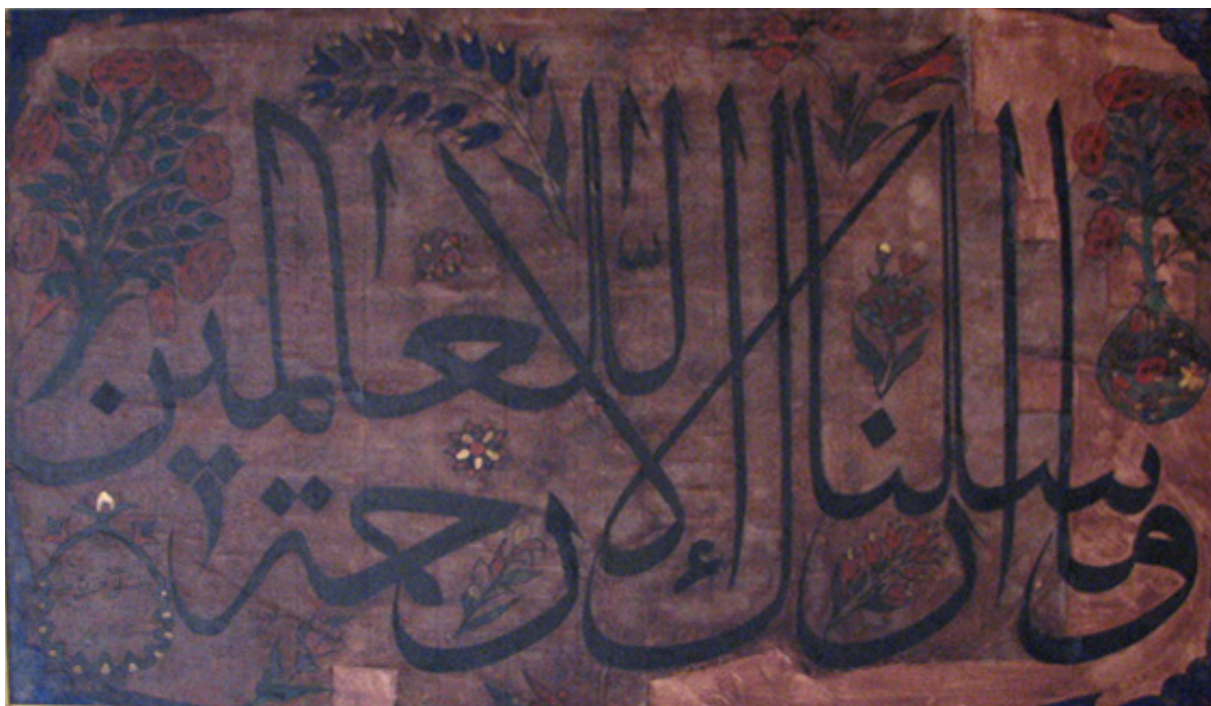 وما ارسلناك الا رحمة للعالمين